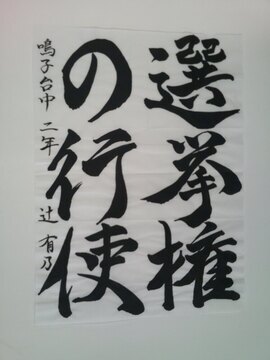 選挙権
の行使
鳴子台中 二年 辻 有乃